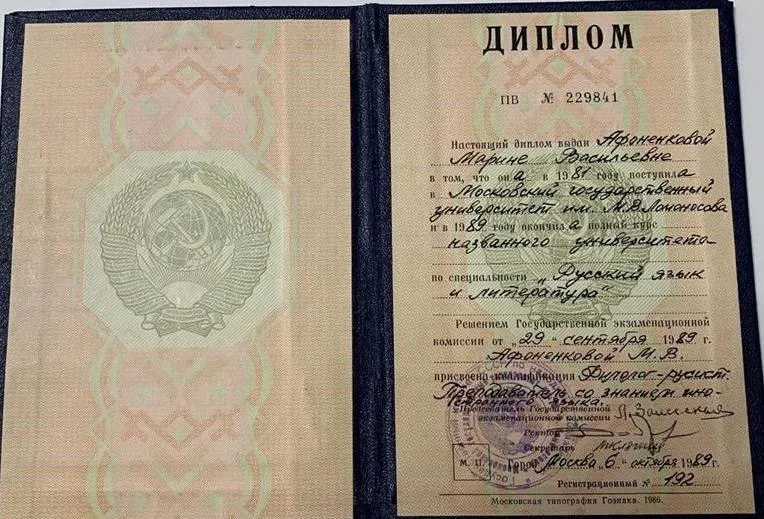 ДИПЛОМ
ПВ № 229841
Настоящий диплом выдан Афоненковой
Марине Васильевне
в том, что она в 1981 году поступила
в Московский государственный
университет им. М.В. Ломоносова
и в 1989 году окончила полный курс
названного университета
по специальности „Русский язык
и литература"
Решением Государственной экзаменационной
комиссии от „29" сентября 1989 г.
Афоненковой М.В.
присвоена квалификация Филолог-русист.
Преподаватель со знанием ино-
странного языка.
Председатель Государственной
экзаменационной комиссии
Ректор
Секретарь
М. П. Город Москва „6" октября 1989 г.
Регистрационный № 192
Московская типография Гознака. 1986.